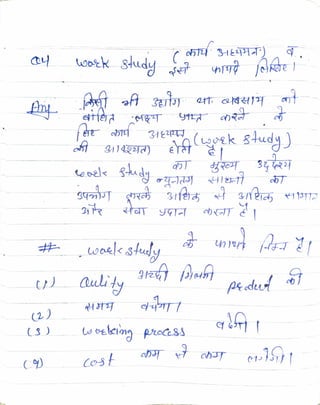 Q4 work study (कार्य अध्ययन) व इसके फायदे लिखिए।
Ans किसी भी उद्योग या व्यवसाय को
वांछित लक्ष्य प्राप्त करने के
लिए कार्य अध्ययन (work study)
की आवश्यकता होती है।
work study का मुख्य उद्देश्य
न्यूनतम साधनों का
उपयोग करके अधिक से अधिक सामान
और सेवा प्रदान करना है।
# work study के फायदे निम्न है।
(1) Qulity अच्छी मिलेगी product की
(2) समय बचेगा।
(3) working process बढेगी।
(4) cost कम से कम लगेगी।